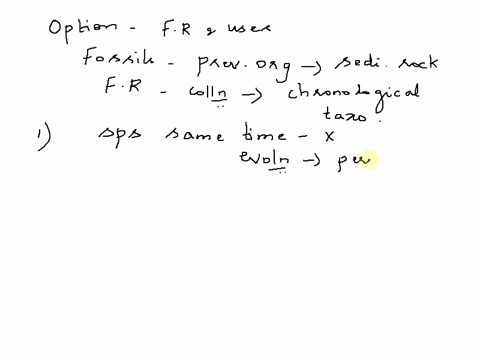 Option - F.R & uses
Fossils - prev. org → sedi. rock
F.R - colln → chronological
taxo.
1) sps same time - x
evoln → per